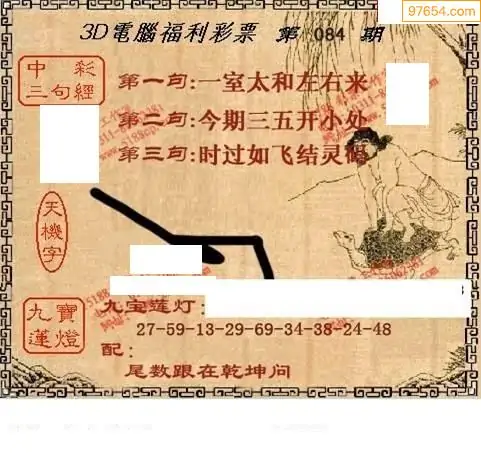 97654.com
3D電腦福利彩票 第 084 期
中彩
三句經
第一句:一室太和左右来
第二句:今期三五开小处
第三句:时过如飞结灵码
天機字
九寶蓮燈
九宝莲灯:
27-59-13-29-69-34-38-24-48
配:
尾数跟在乾坤问